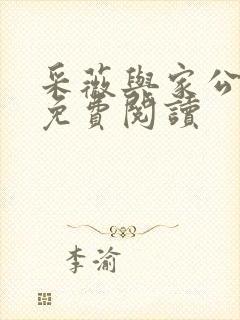 采薇與家公
免費閱讀
李渝